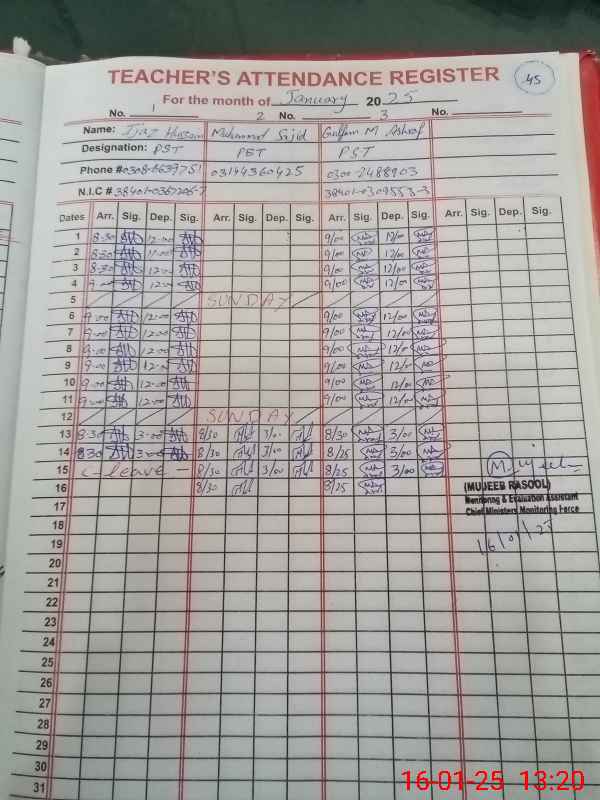 TEACHER'S ATTENDANCE REGISTER 45
For the month of January 2025
No. 1 No. 2 No. 3 No.
Name: Ijaz Hussain Muhammad Sajid Gulfam M Ashraf
Designation: PST PET PST
Phone # 0308-8639751 03144360425 0300-7488903
N.I.C # 38401-0309553-3
Dates Arr. Sig. Dep. Sig. Arr. Sig. Dep. Sig. Arr. Sig. Dep. Sig. Arr. Sig. Dep. Sig.
1 8-30 12-00 9/00 12/00
2 8-30 12-00 9/00 12/00
3 8-30 12-00 9/00 12/00
4 9-00 12-00 9/00 12/00
5 SUNDAY
6 9-00 12-00 9/00 12/00
7 9-00 12-00 9/00 12/00
8 9-00 12-00 9/00 12/00
9 9-00 12-00 9/00 12/00
10 9-00 12-00 9/00 12/00
11 9-00 12-00 9/00 12/00
12 SUNDAY
13 8-30 3-00 8/30 3/00 8/30 3/00
14 830 3-00 8/30 3/00 8/25 3/00
15 C-leave - 8/30 3/00 8/25 3/00
16 8/30 8/25
M. Mujeeb
(MUJEEB RASOOL)
Monitoring & Evaluation Assistant
Chief Ministers Monitoring Force
16/01/25
17
18
19
20
21
22
23
24
25
26
27
28
29
30
31
16-01-25 13:20